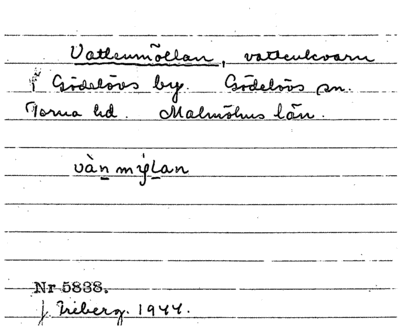 Vattenmöllan, vattenkvarn
i Gödelövs by. Gödelövs sn.
Torna hd. Malmöhus län.
vàn mýlan
Nr 5838.
J. Friberg. 1944.